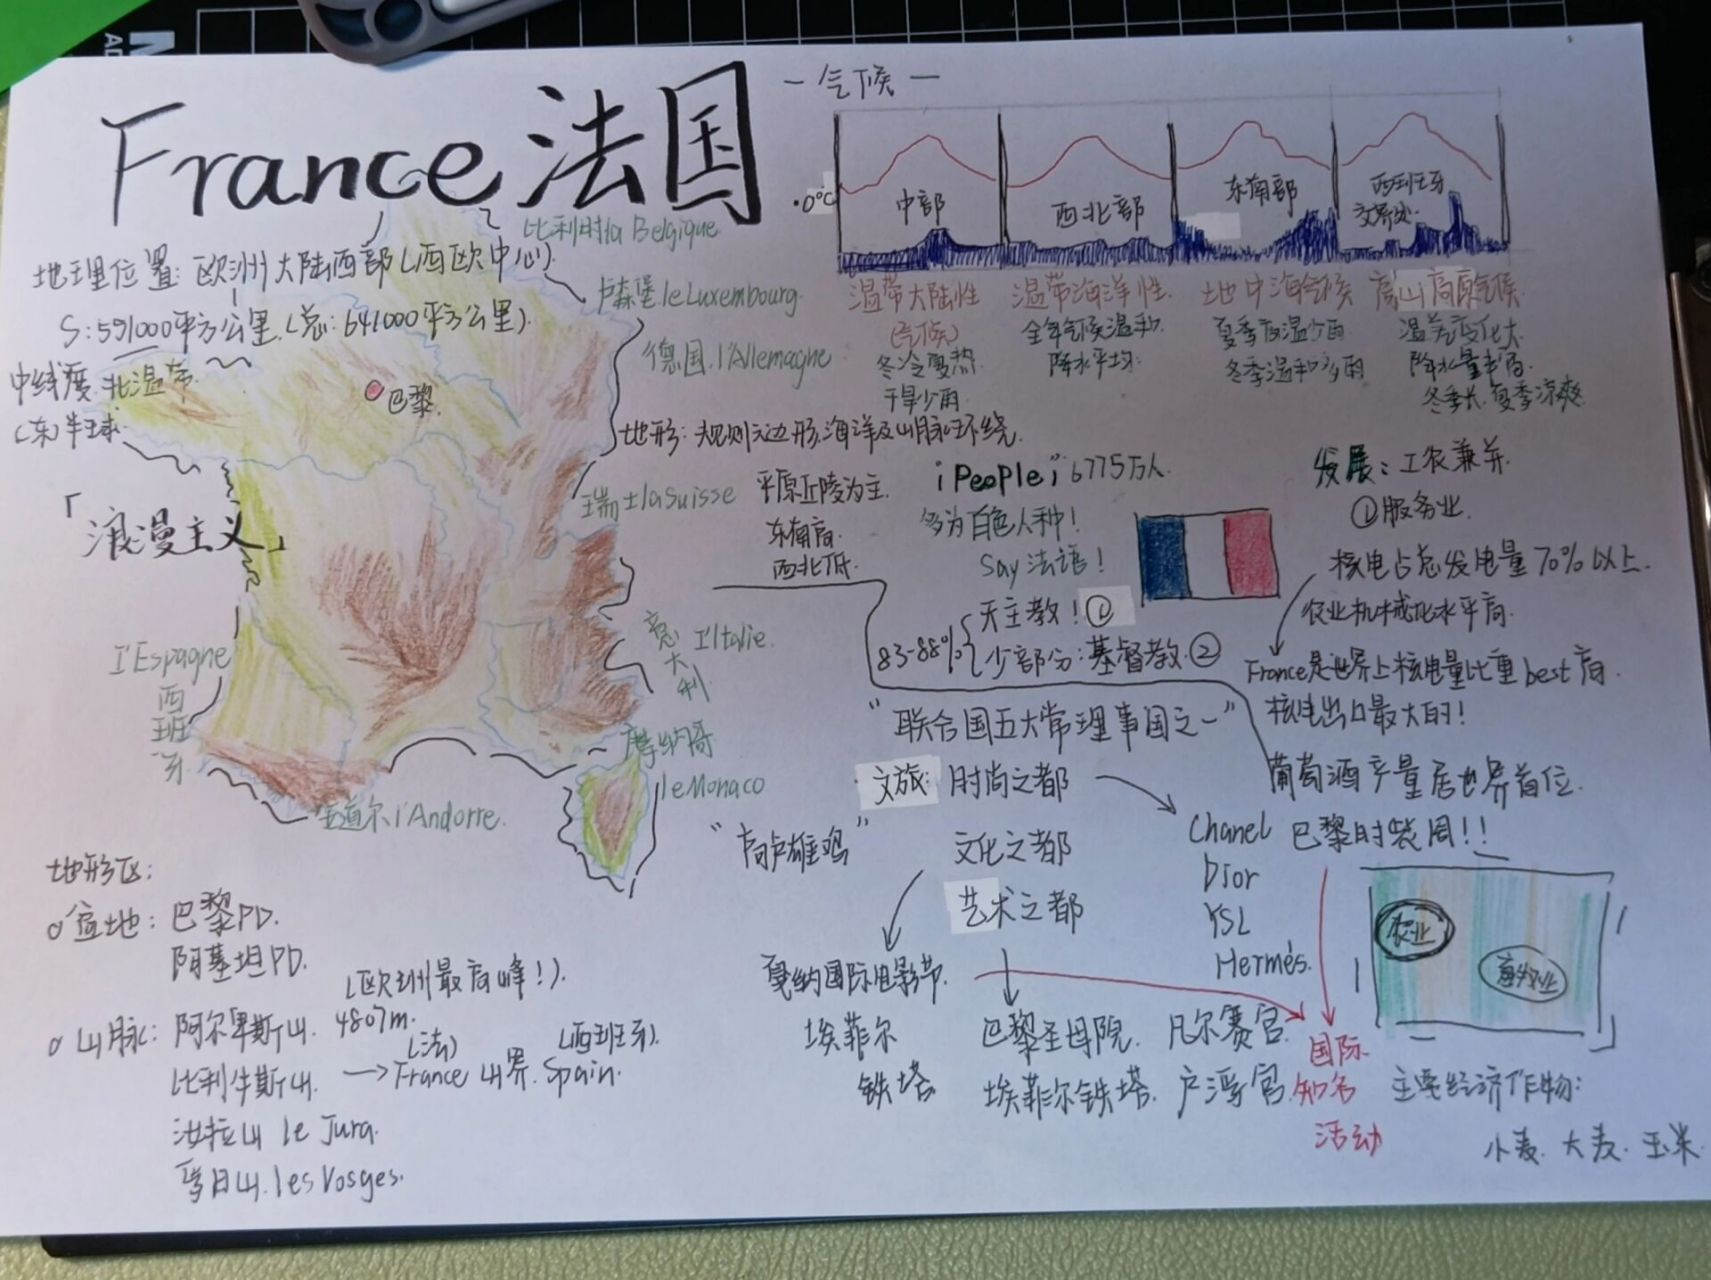 France 法国
地理位置: 欧洲大陆西部(西欧中心).
S: 551000平方公里.(总: 641000平方公里).
中纬度.北温带.
(东)半球.
「浪漫主义」
巴黎.
比利时la Belgique
卢森堡leLuxembourg.
德国.l'Allemagne
瑞士laSuisse
意大利 I'Italie.
摩纳哥
leMonaco
安道尔l'Andorre.
I'Espagne
西班牙
地形: 规则六边形,海洋及山脉环绕.
平原丘陵为主.
东南高.
西北低.
地形区:
盆地: 巴黎PD.
阿基坦PD.
山脉: 阿尔卑斯山. 4807m.
(欧洲最高峰!).
比利牛斯山. → France 山界. Spain.
(法) (西班牙).
汝拉山 le Jura.
孚日山.les Vosges.
— 气候 —
·0℃
中部
西北部
东南部
西班牙
交界处.
温带大陆性
(气候)
冬冷夏热
干旱少雨
温带海洋性.
全年气候温和.
降水平均.
地中海气候
夏季高温少雨
冬季温和多雨
高山高原气候.
温差变化大.
降水量丰富.
冬季长.夏季凉爽
¡People¡ 6775万人.
多为白色人种!
Say 法语!
83-88% 天主教!①
少部分: 基督教.②
"联合国五大常理事国之一"
发展: 工农兼并.
①服务业.
核电占总发电量70%以上.
农业机械化水平高.
France是世界上核电量比重best高.
核电出口最大的!
葡萄酒产量居世界首位.
文旅: 时尚之都
文化之都
艺术之都
"高卢雄鸡"
Chanel 巴黎时装周!!
Dior
YSL
Hermés.
戛纳国际电影节.
埃菲尔
铁塔
巴黎圣母院. 凡尔赛宫.
埃菲尔铁塔. 卢浮宫.
国际
知名
活动
农业
畜牧业
主要经济作物:
小麦. 大麦. 玉米